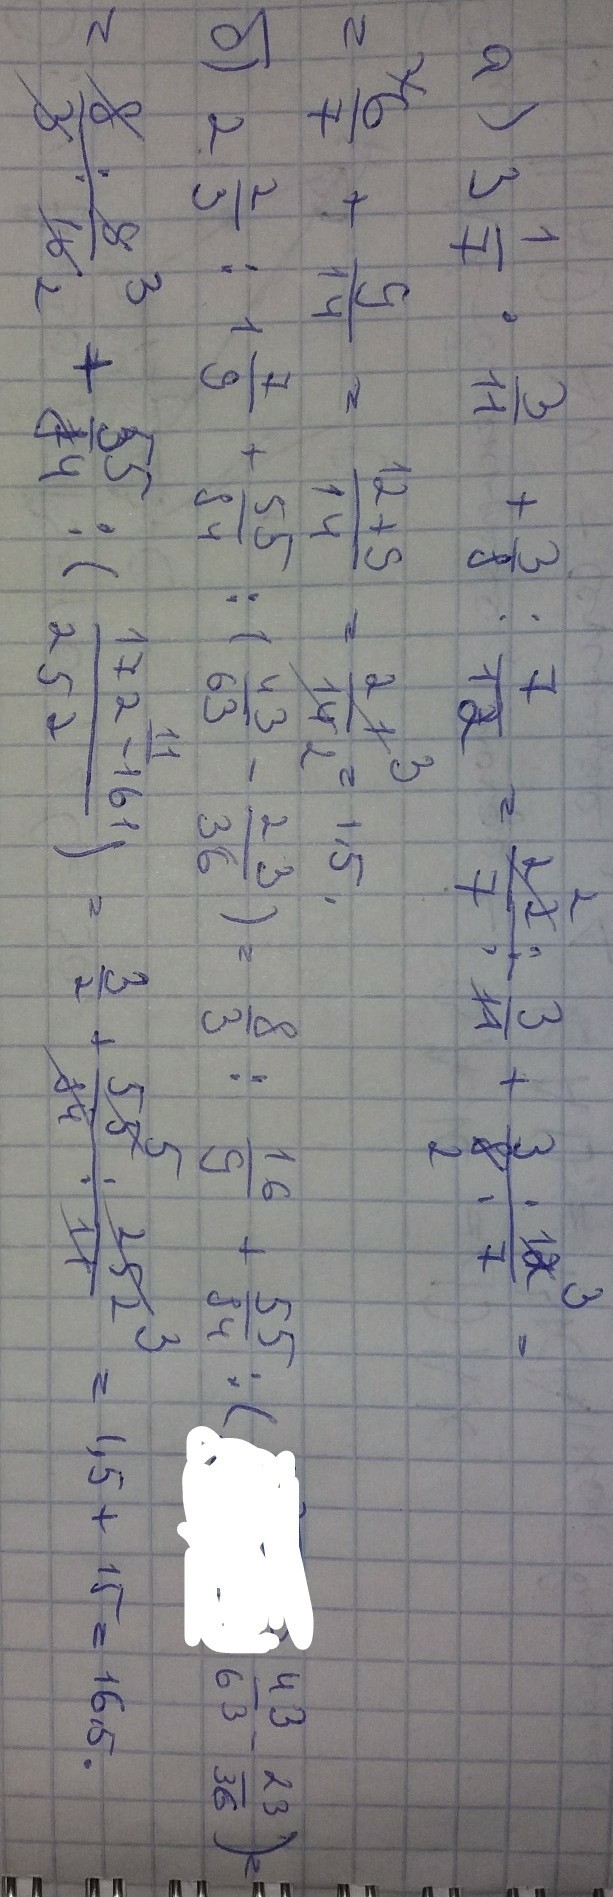 а) 3 1/7 · 3/11 + 3/8 : 7/12 = 22 · 3 / 7 · 11 + 3 · 12 / 8 · 7 =
2 3 2
= 6/7 + 9/14 = 12+9 / 14 = 21/14 = 3/2 = 1,5.
б) 2 2/3 : 1 7/9 + 55/84 : (43/63 - 23/36) = 8/3 : 16/9 + 55/84 : ( 43/63 - 23/36) =
= 8 · 9 / 3 · 16 + 55/84 : (172-161 / 252) = 3/2 + 55 · 252 / 84 · 11 = 1,5 + 15 = 16,5.
3 2 11 5 3